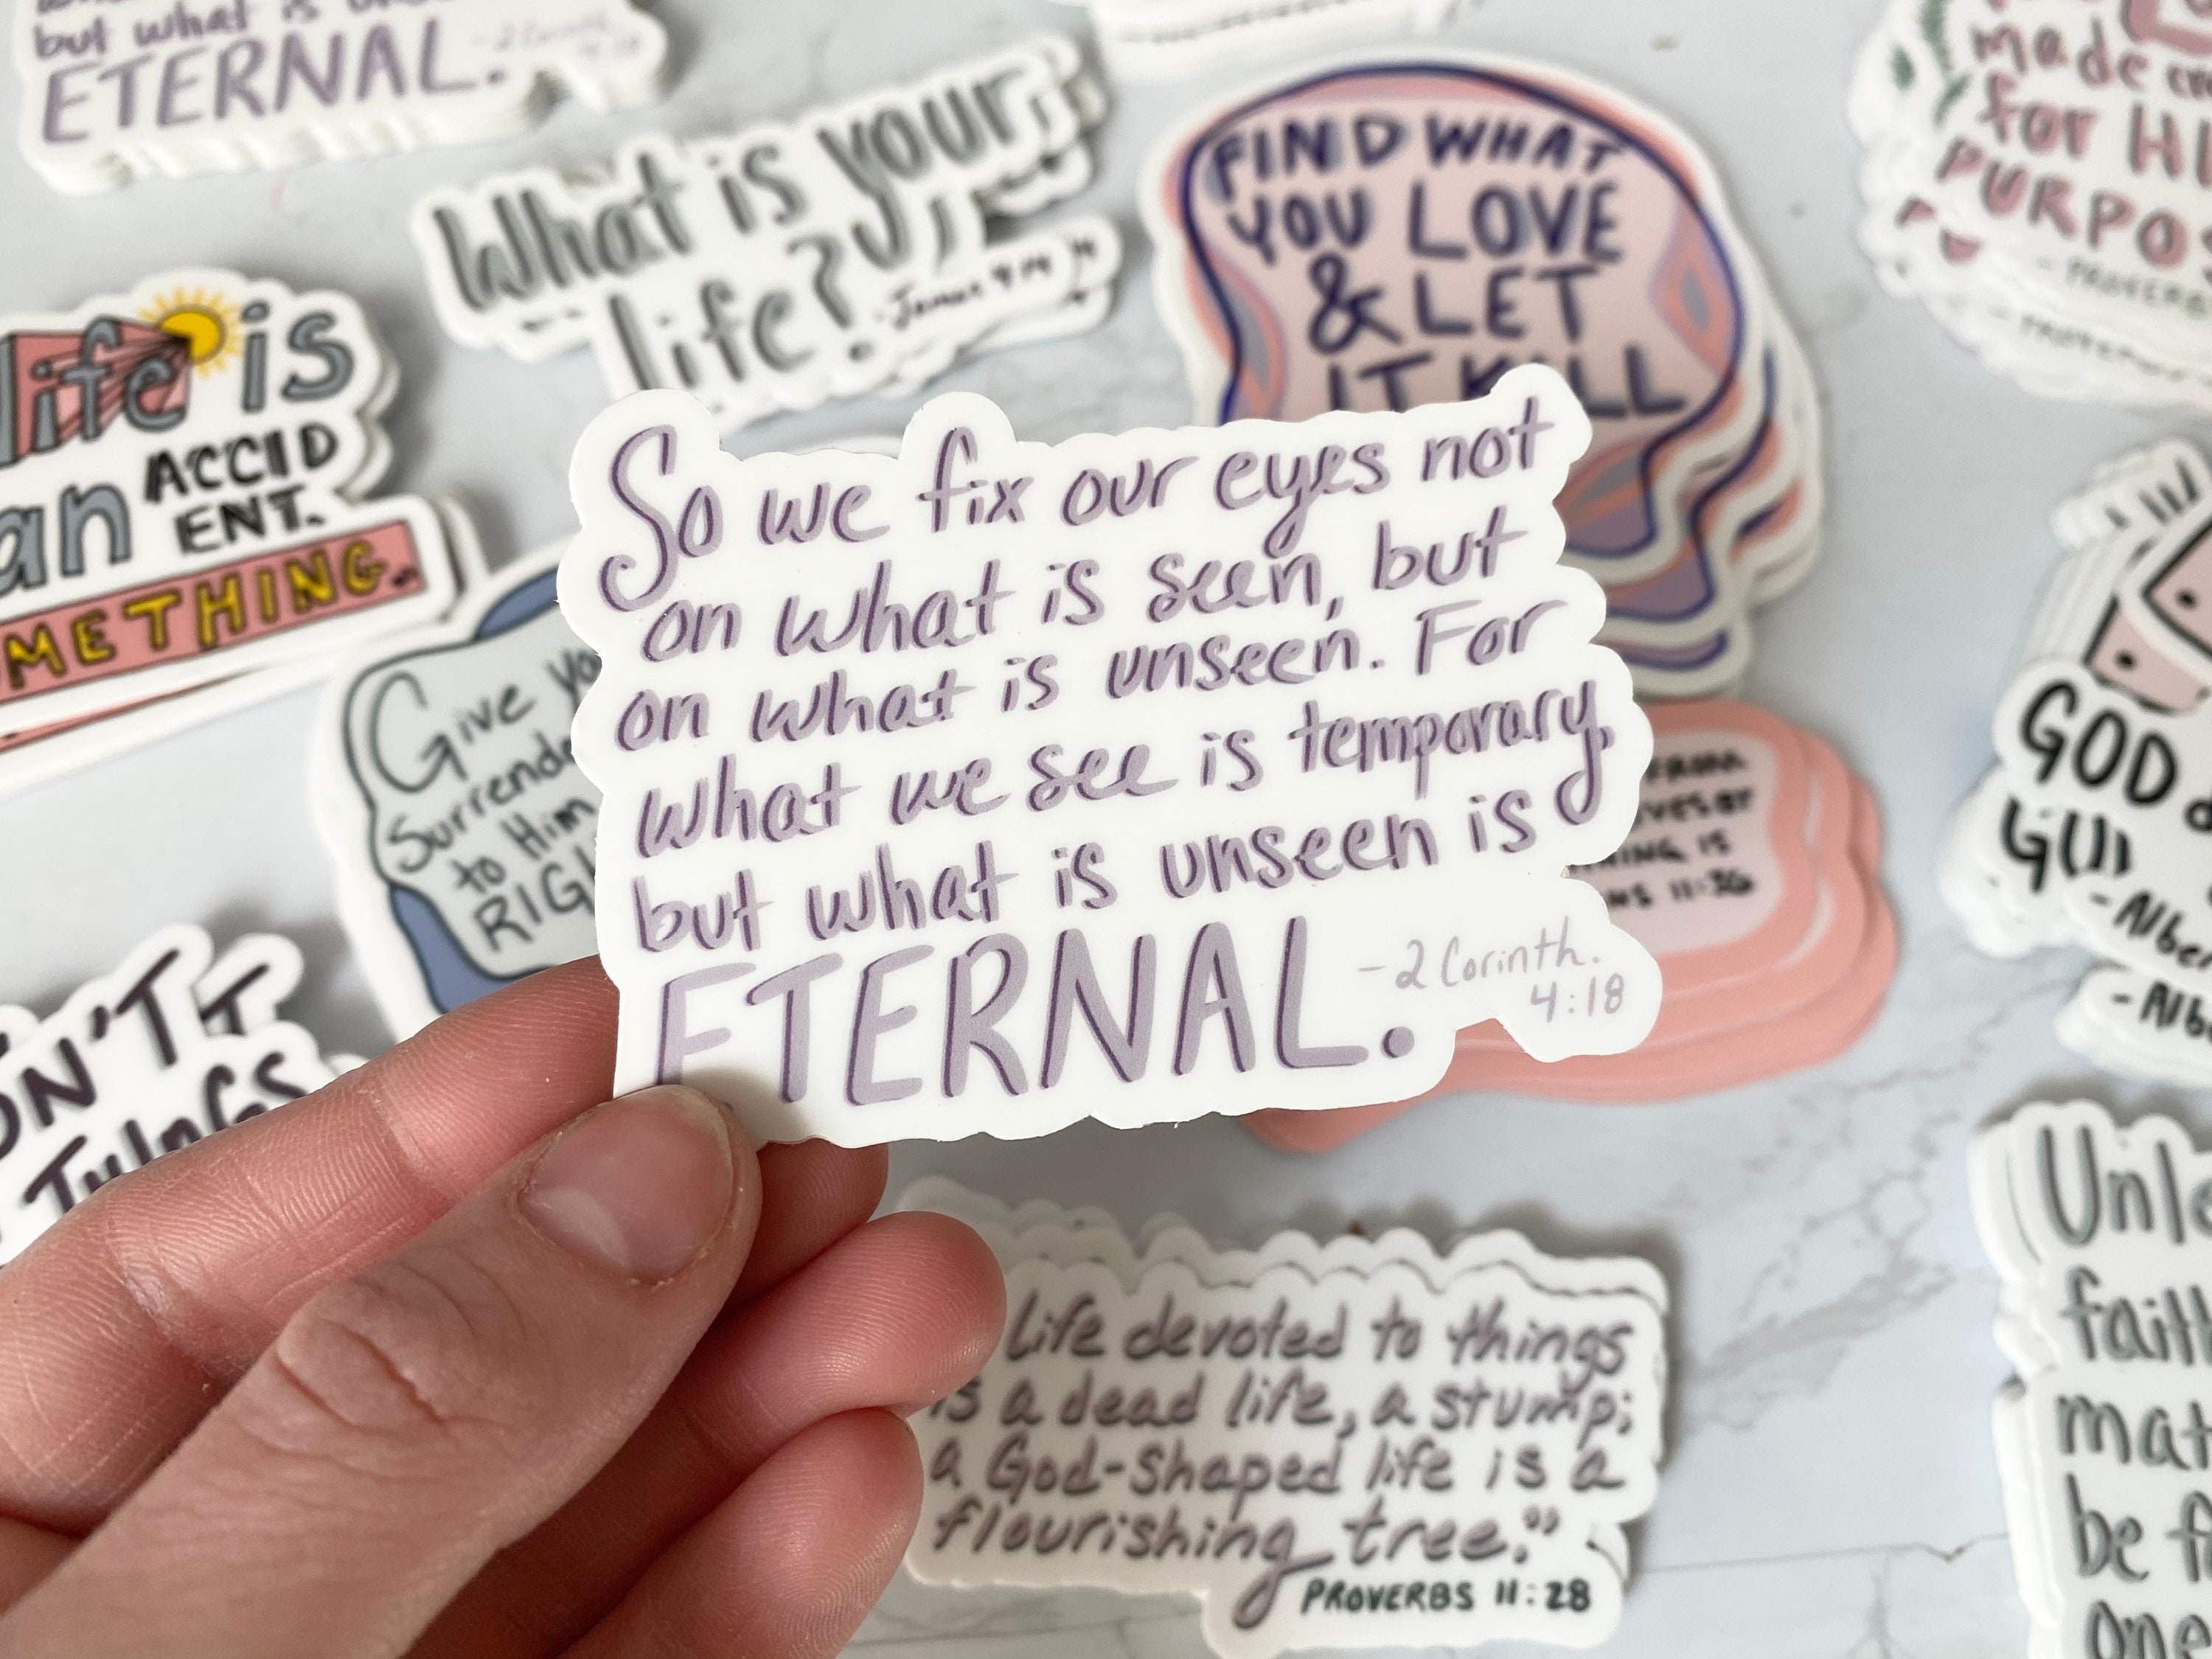 but what is
ETERNAL.
-2 Corinth.
4:18
What is your
life?
-James 4:14
FIND WHAT
YOU LOVE
& LET
IT KILL
made
for
PURPOS
- PROVERB
life is
an ACCID
ENT.
OMETHING.
Give yo
Surrende
to Him
RIG
So we fix our eyes not
on what is seen, but
on what is unseen. For
what we see is temporary,
but what is unseen is
ETERNAL.
-2 Corinth.
4:18
IS
11:36
GOD
-Alber
-Albe
ON'T
THINGS
Life devoted to things
is a dead life, a stump;
a God-shaped life is a
flourishing tree."
PROVERBS 11:28
Unle
faith
mat
be f
one